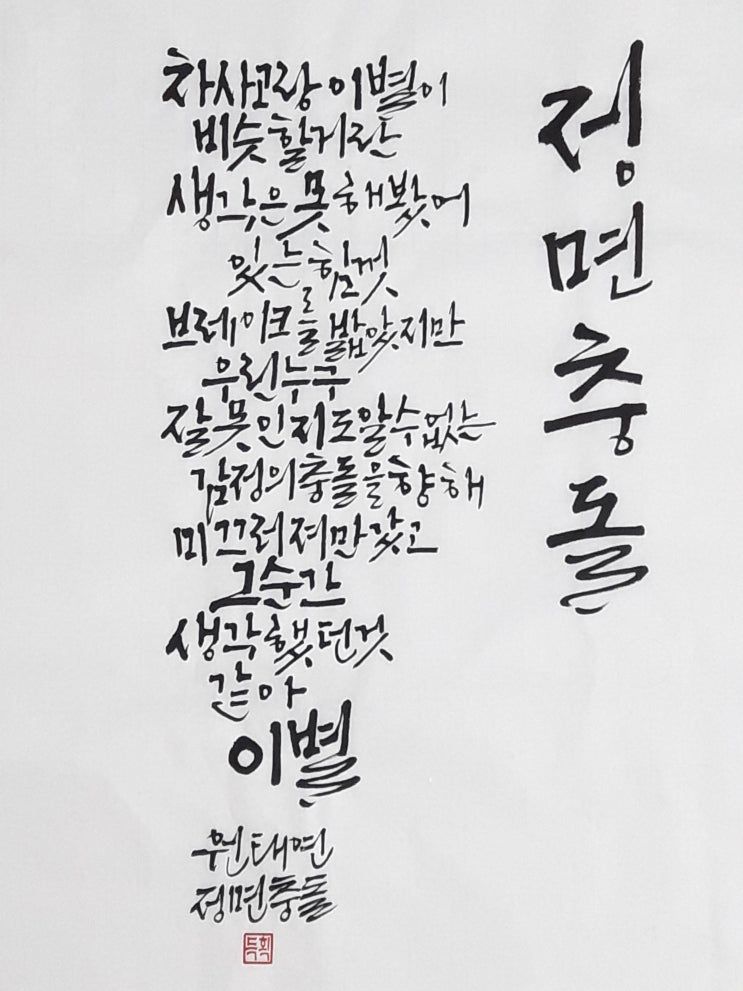 정면충돌
차사고랑 이별이
비슷할거란
생각은 못해봤어
있는 힘껏
브레이크를 밟았지만
우린 누구
잘못인지도 알수 없는
감정의 충돌을 향해
미끄러져만 갔고
그 순간
생각했던것
같아
이별
원태연
정면충돌